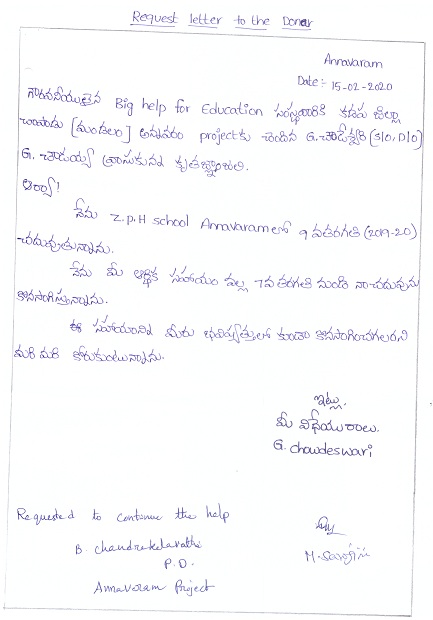 Request letter to the Donor
Annavaram
Date:- 15-02-2020
గౌరవనీయులైన Big help for Education సంస్థవారికి కడప జిల్లా
చాపాడు [మండలం] అన్నవరం projectకు చెందిన G. చౌడేశ్వరి (S/O, D/O)
G. చౌడయ్య వ్రాసుకున్న కృతజ్ఞాంజలి.
ఆర్యా!
నేను Z.P.H school Annavaramలో 9 వతరగతి (2019-20)
చదువుతున్నాను.
నేను మీ ఆర్థిక సహాయం వల్ల 7వ తరగతి నుండి నా చదువును
కొనసాగిస్తున్నాను.
ఈ సహాయాన్ని మీరు భవిష్యత్తులో కుడా కొనసాగించగలరని
మరి మరి కోరుకుంటున్నాను.
ఇట్లు,
మీ విధేయురాలు.
G. chowdeswari
Requested to continue the help
B. chandrakalavathi
P.D.
Annavaram Project
M. Sarojini